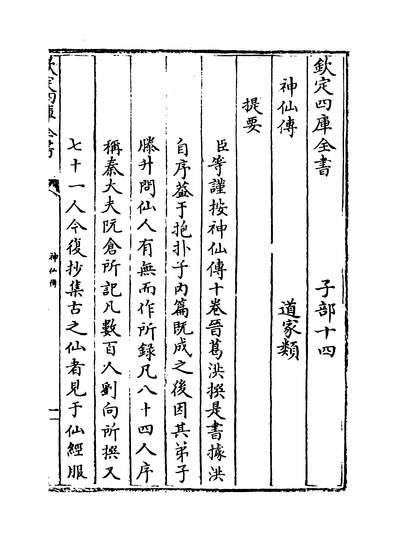 欽定四庫全書　子部十四
神仙傳　道家類
提要
臣等謹按神仙傳十卷晉葛洪撰是書據洪
自序葢于抱朴子內篇既成之後因其弟子
滕升問仙人有無而作所錄凡八十四人序
稱秦大夫阮倉所記凡數百人劉向所撰又
七十一人今復抄集古之仙者見于仙經服
欽定四庫全書
神仙傳
一